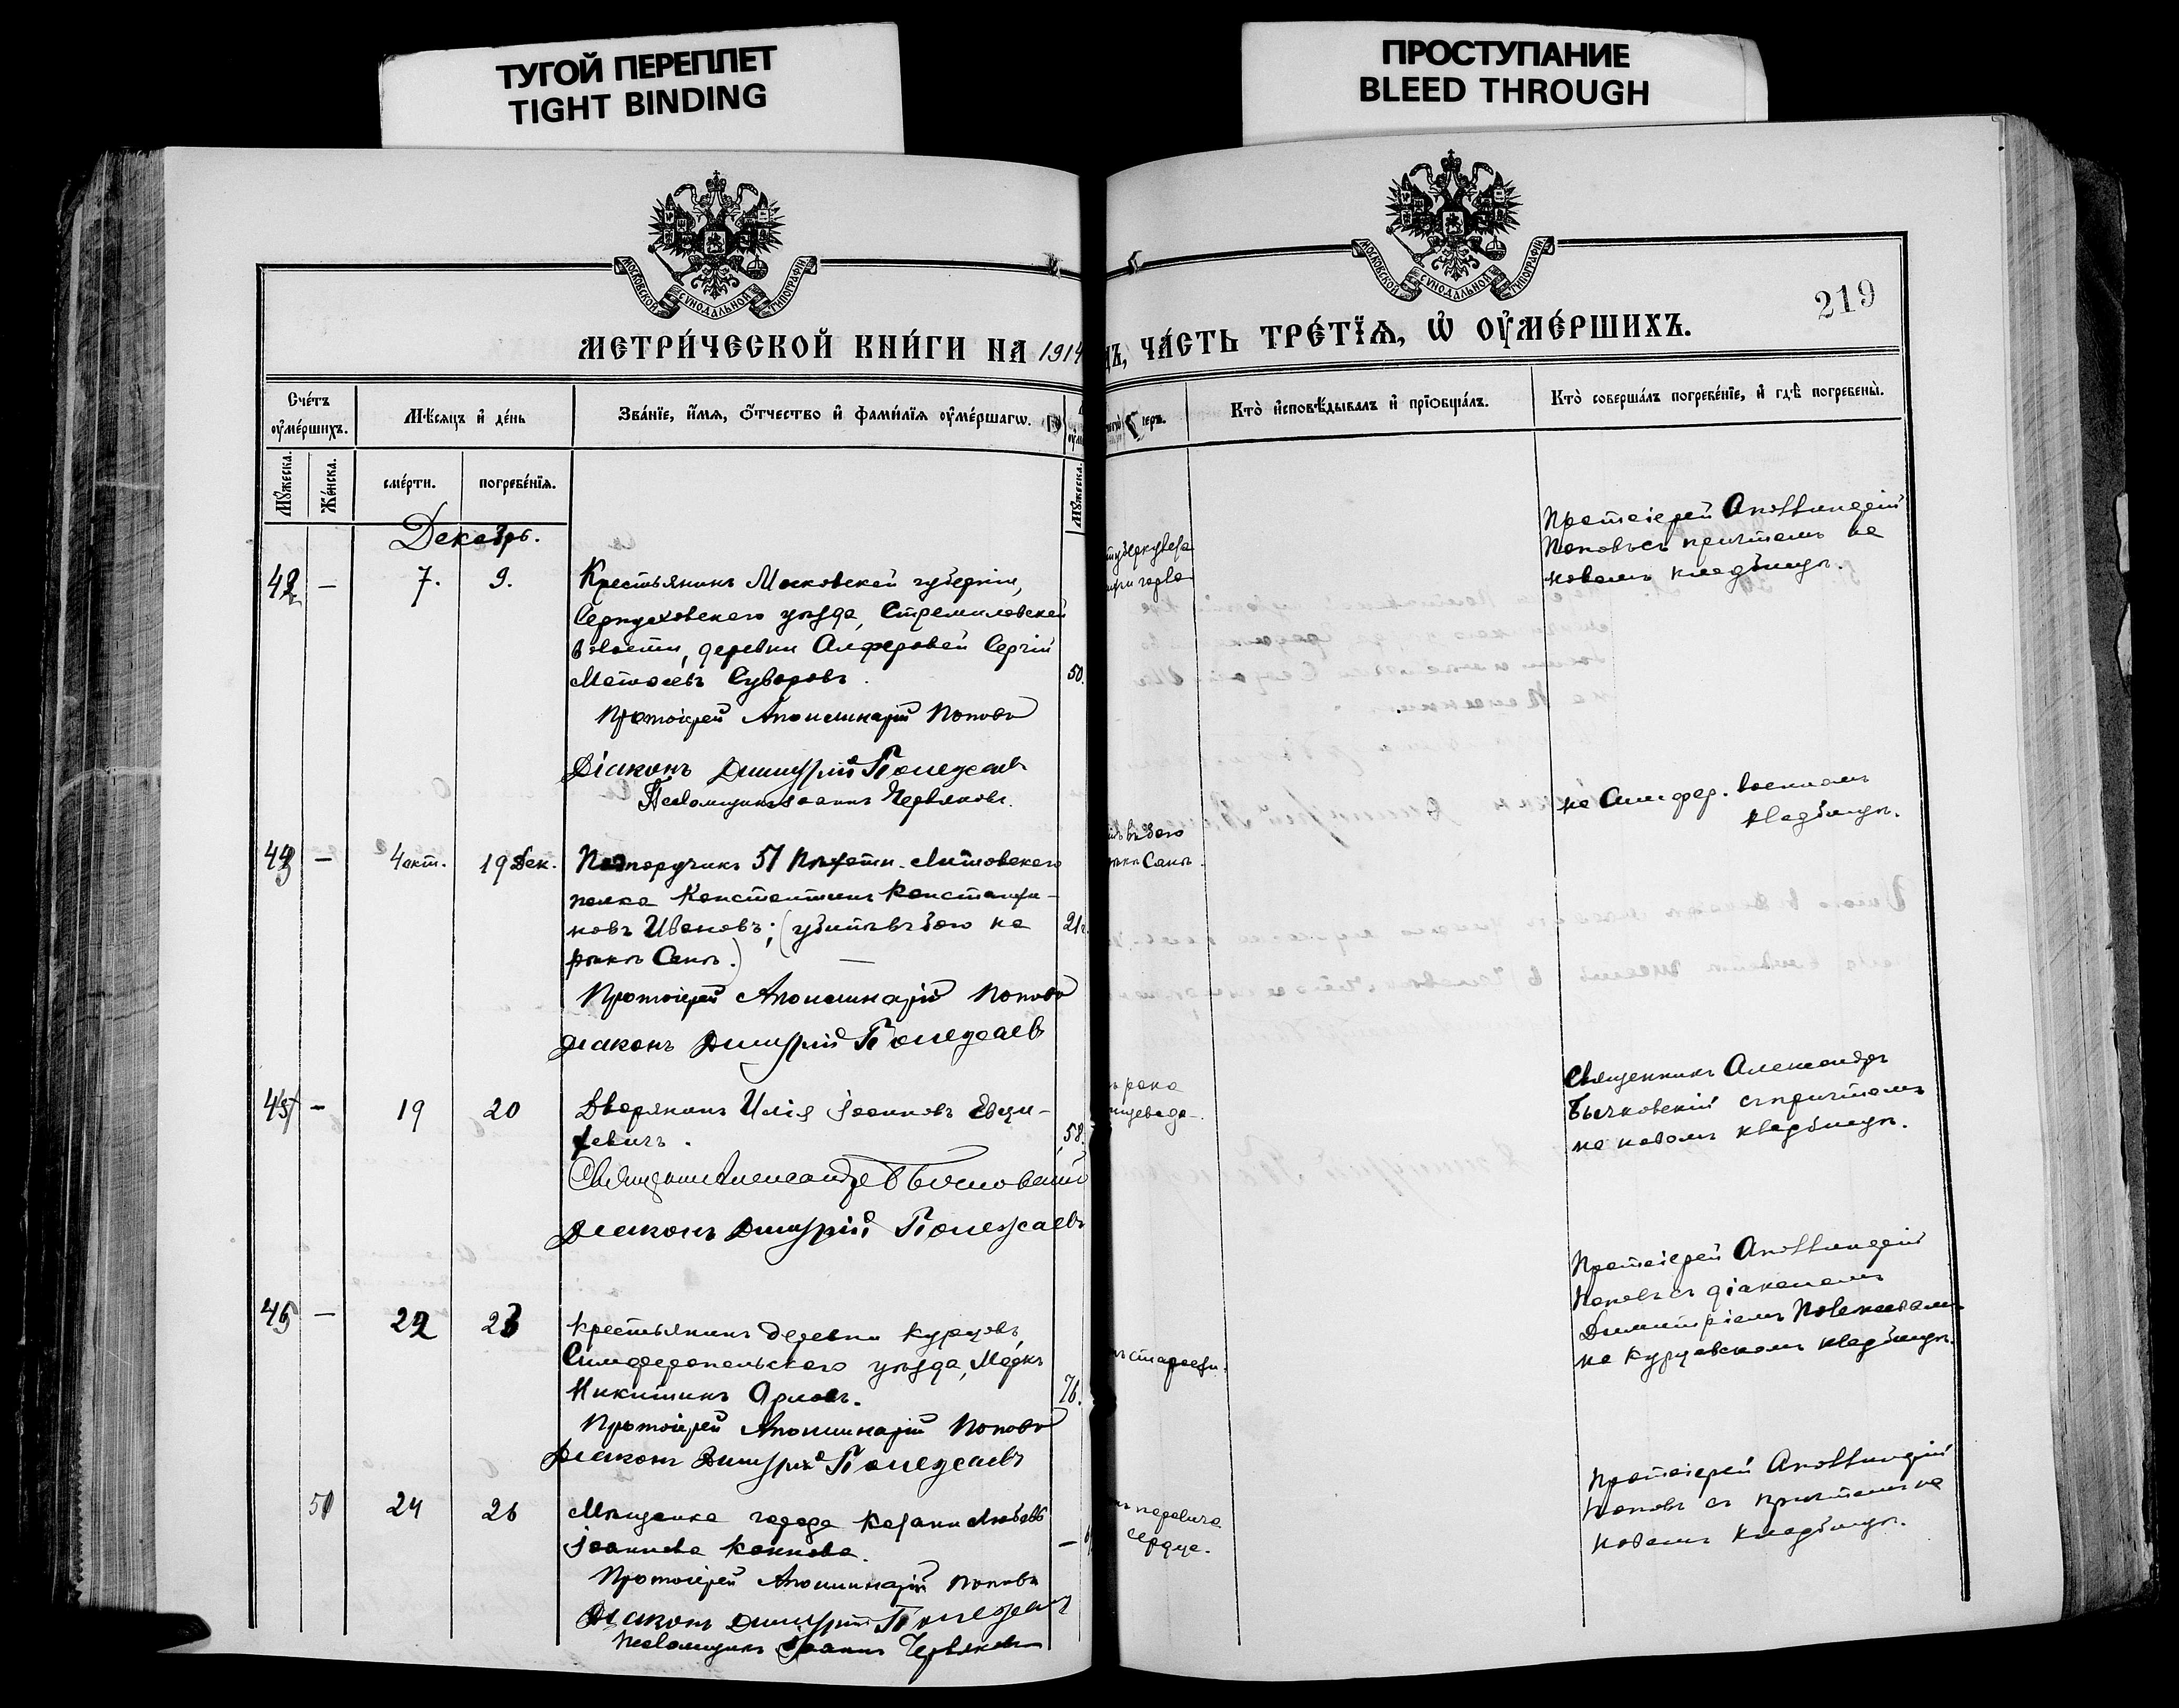 ТУГОЙ ПЕРЕПЛЕТ
TIGHT BINDING
ПРОСТУПАНИЕ
BLEED THROUGH
МОСКОВСКОЙ СУНОДАЛЬНОЙ ТИПОГРАФІИ
МОСКОВСКОЙ СУНОДАЛЬНОЙ ТИПОГРАФІИ
219
МЕТРИ́ЧЕСКОЙ КНИ́ГИ НА 1914
ДЪ, ЧА́СТЬ ТРЕ́ТЇѦ, Ѡ҆ ОУ҆МЕ́РШИХЪ.
Сче́тъ оу҆ме́ршихъ.
Мѣ́сяцъ и҆ де́нь
Зва́нїе, и҆́мя, ѻ҆́тчество и҆ фами́лїя оу҆ме́ршагѡ.
Кто̀ и҆сповѣ́дывалъ и҆ прїѡбща́лъ.
Кто̀ соверша́лъ погребе́нїе, и҆ гдѣ̀ погребены̀.
Мꙋ́жеска.
Же́нска.
сме́рти.
погребе́нїя.
Мꙋ́жеска.
Декабрь.
42 — 7. 9. Крестьянинъ Московской губерніи,
Серпуховскаго уѣзда, Стремиловской
волости, деревни Алферовой Сергій
Матѳеевъ Суворовъ. 50.
Протоіерей Аполлинарій Поповъ
Діаконъ Димитрій Полежаев
Псаломщикъ Іоаннъ Червяковъ.
Протоіерей Аполлинарій
Поповъ съ причтомъ на
новомъ кладбищѣ.
43 — 4 окт. 19 Дек. Подпоручикъ 51 пѣхотн. Литовскаго
полка Константинъ Константи-
новъ Ивановъ; (убитъ въ бою на
рѣкѣ Санъ.) 21 г.
Протоіерей Аполлинарій Поповъ
Діаконъ Димитрій Полежаев
въ бою
рѣкѣ Санѣ.
на Симфер. военномъ
кладбищѣ.
— 19 20 Дворянинъ Илія Іоанновъ
58.
Священникъ Александръ Бычковскій
Діаконъ Димитрій Полежаевъ
рака
пищевода.
Священникъ Александръ
Бычковскій съ причтомъ
на новомъ кладбищѣ.
— 22 23 Крестьянинъ деревни Курцовъ,
Симферопольскаго уѣзда, Маркъ
Никитинъ Орловъ. 76.
Протоіерей Аполлинарій Поповъ
Діаконъ Димитрій Полежаевъ
старости.
Протоіерей Аполлинарій
Поповъ съ діакономъ
Димитріемъ Полежаевымъ
на Курцовскомъ кладбищѣ.
24 26 Мѣщанка города Казани Любовь
Іоаннова —
Протоіерей Аполлинарій Поповъ
Діаконъ Димитрій Полежаев
Псаломщикъ Іоаннъ Червяковъ
паралича
сердца.
Протоіерей Аполлинарій
Поповъ съ причтомъ на
новомъ кладбищѣ.